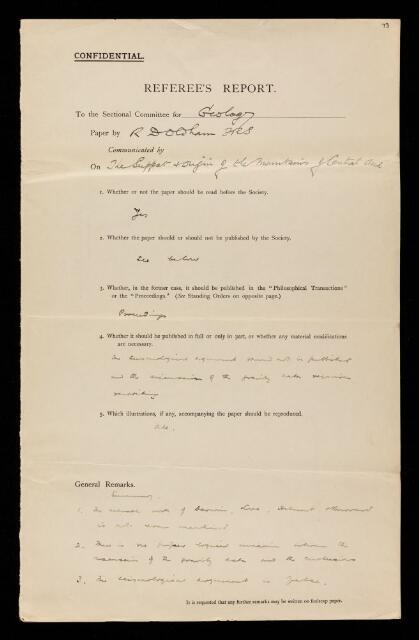 73
CONFIDENTIAL.
REFEREE'S REPORT.
To the Sectional Committee for Geology
Paper by R D Oldham FRS
Communicated by
On The Support & Origin of the Mountains of Central Asia
1. Whether or not the paper should be read before the Society.
Yes
2. Whether the paper should or should not be published by the Society.
See below
3. Whether, in the former case, it should be published in the "Philosophical Transactions"
or the "Proceedings." (See Standing Orders on opposite page.)
Proceedings
4. Whether it should be published in full or only in part, or whether any material modifications
are necessary.
The seismological argument should not be published
and the discussion of the gravity data requires
rewriting
5. Which illustrations, if any, accompanying the paper should be reproduced.
General Remarks.
Summary.
1. The recent work of
is not even mentioned
2. There is no proper logical connexion between the
discussion of the gravity data and the conclusions
3. The seismological argument is false.
It is requested that any further remarks may be written on foolscap paper.